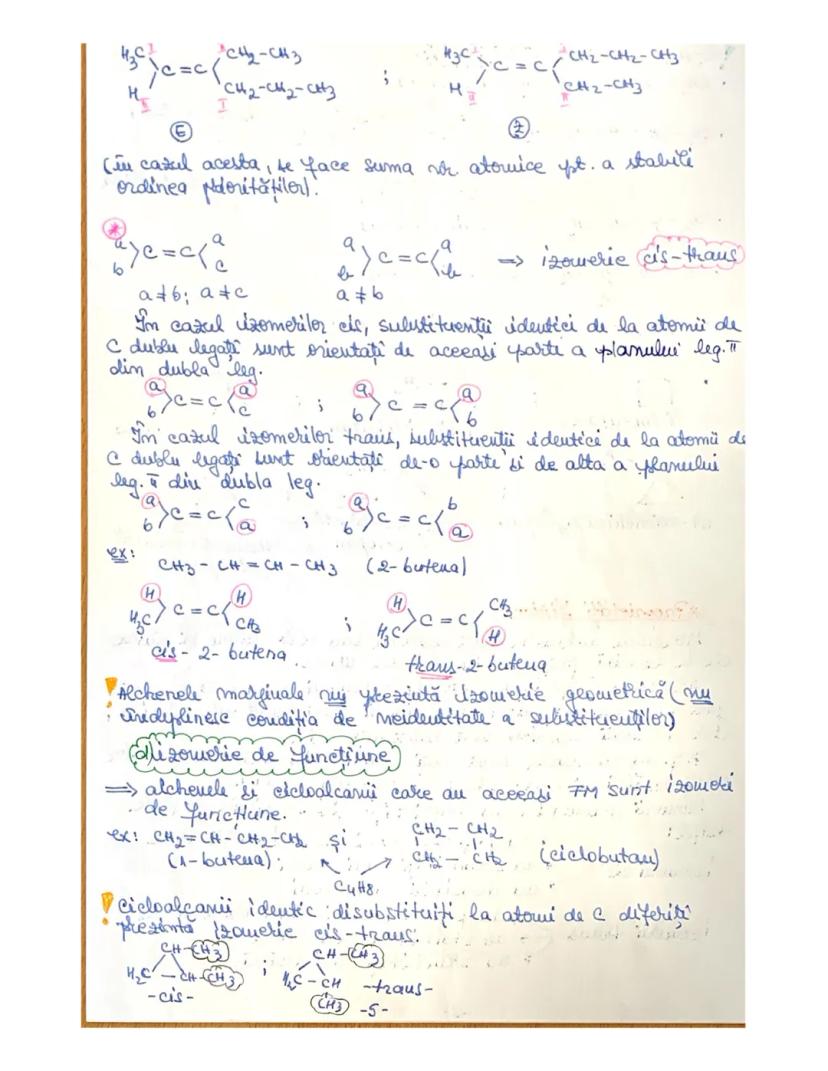 H₃C I I CH₂-CH₃ H₃C I CH₂-CH₂-CH₃
C=C ; C=C
H II I CH₂-CH₂-CH₃ H II II CH₂-CH₃
E Z
(în cazul acesta, se face suma nr. atomice pt. a stabili
ordinea priorităților).
*
a a a a
>C=C< >C=C< ⇒ izomerie cis-trans
b c b b
a≠b; a≠c a≠b
În cazul izomerilor cis, substituenții identici de la atomii de
C dublu legați sunt orientați de aceeași parte a planului leg. π
din dubla leg.
a a a a
>C=C< ; >C=C<
b c b b
În cazul izomerilor trans, substituenții identici de la atomii de
C dublu legați sunt orientați de-o parte și de alta a planului
leg. π din dubla leg.
a c a b
>C=C< ; >C=C<
b a b a
ex:
CH₃-CH=CH-CH₃ (2-butena)
H H H CH₃
>C=C< ; >C=C<
H₃C CH₃ H₃C H
cis-2-butena trans-2-butena
! Alchenele marginale nu prezintă izomerie geometrică (nu
îndeplinesc condiția de neidentitate a substituenților)
d) izomerie de funcțiune
⇒ alchenele și cicloalcanii care au aceeași FM sunt izomeri
de funcțiune.
ex: CH₂=CH-CH₂-CH₃ și CH₂-CH₂
(1-butena); CH₂-CH₂ (ciclobutan)
C₄H₈
! Cicloalcanii identic disubstituiți la atomi de C diferiți
prezintă izomerie cis-trans.
CH-CH₃ CH-CH₃
H₂C-CH-CH₃ ; H₂C-CH -trans-
-cis- CH₃ -5-